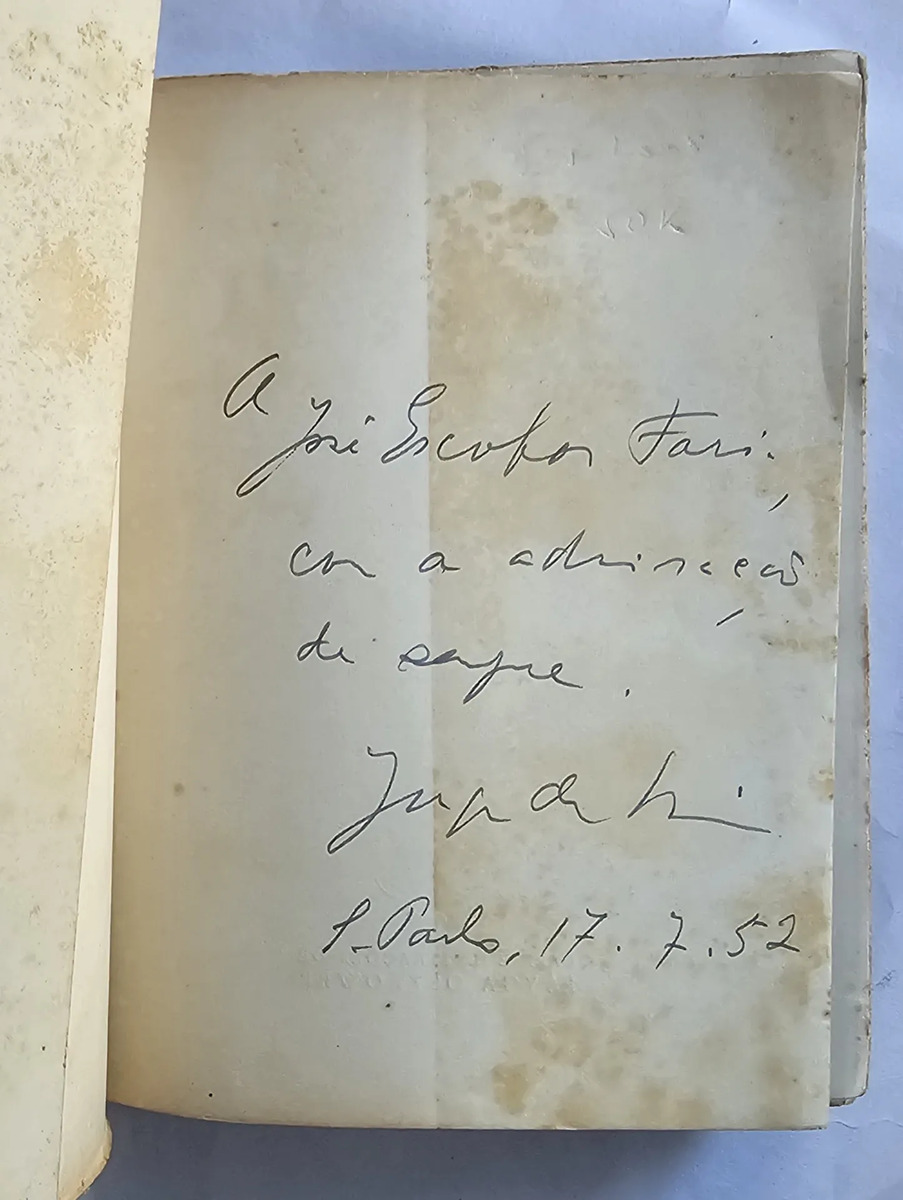 A
José Escobar Faria,
com a admiração
de sempre.
Jorge de Lima
S. Paulo, 17.7.52